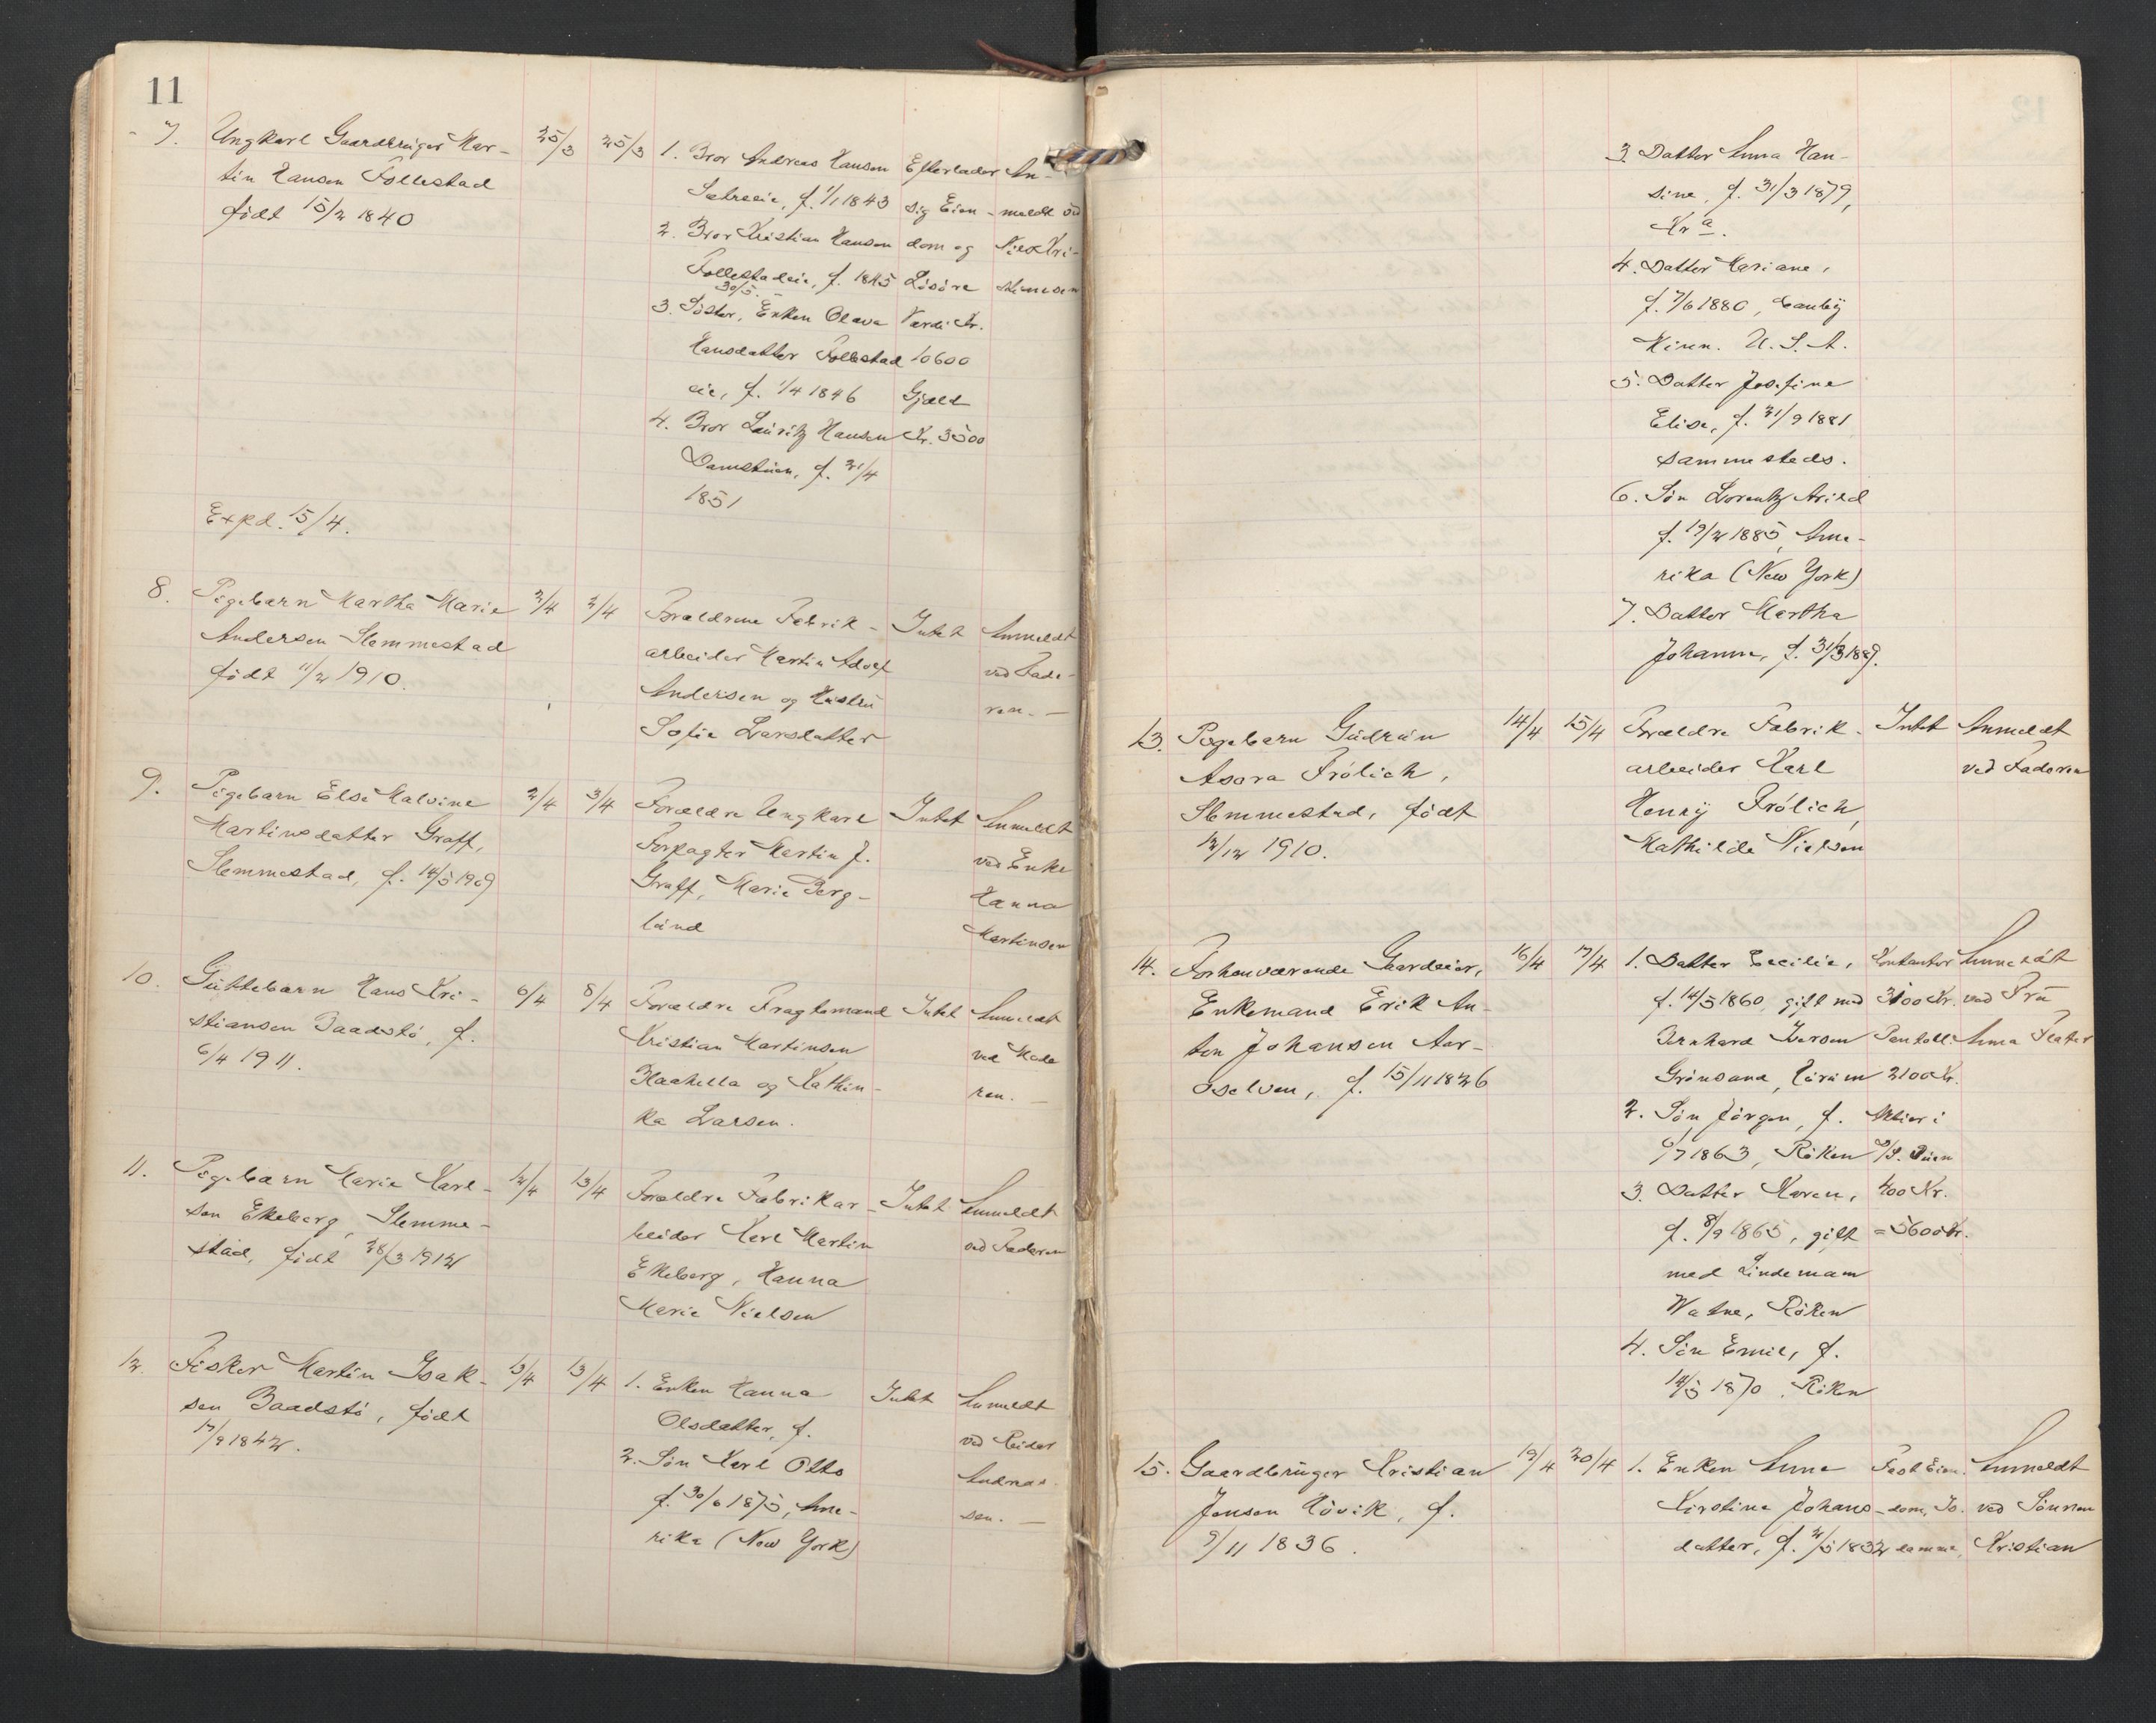 11
7.
Ungkarl Gaardbruger Mar-
tin Hansen Follestad
født 15/2 1840
Expd. 15/4.
25/3
25/3
1. Bror Andreas Hansen
Sætreeie, f. 1/1 1843
2. Bror Kristian Hansen
Follestadeie, f. 1845
30/5.
3. Søster, Enken Olava
Hansdatter Follestad
eie, f. 1/4 1846
4. Bror Lauritz Hansen
Damstuen, f. 21/4
1851
Efterlader
sig Eien-
dom og
Løsøre
Værdi Kr.
10600
Gjæld
Kr. 3500
An-
meldt ved
Niels Kri-
stiansen
8.
Pigebarn Martha Marie
Andersen Slemmestad
født 11/2 1910.
2/4
2/4
Forældrene Fabrik-
arbeider Martin Adolf
Andersen og Hustru
Sofie Larsdatter
Intet
Anmeldt
ved Fade-
ren. -
9.
Pigebarn Else Malvine
Martinsdatter Graff,
Slemmestad, f. 14/5 1909
2/4
3/4
Forældre Ungkarl
Forpagter Martin J.
Graff, Marie Berg-
lund
Intet
Anmeldt
ved Enke
Hanna
Martinsen
10.
Guttebarn Hans Kri-
stiansen Baadstø, f.
6/4 1911.
6/4
8/4
Forældre Fragtemand
Kristian Martinsen
Blaahella og Kathin-
ka Larsen.
Intet
Anmeldt
ved Mode
ren. -
11.
Pigebarn Marie Karl-
sen Ekeberg, Slemme-
stad, født 28/3 1912
12/4
13/4
Forældre Fabrikar-
beider Karl Martin
Ekeberg, Hanna
Marie Nielsen
Intet
Anmeldt
ved Faderen
12.
Fisker Martin Isak-
sen Baadstø, født
17/9 1842.
13/4
13/4
1. Enken Hanna
Olsdatter, f.
2. Søn Karl Otto
f. 30/6 1875, Ame-
rika (New York)
Intet
Anmeldt
ved Reidar
Andreas-
sen. -
3. Datter Anna Han-
sine, f. 31/3 1879,
Kra.
4. Datter Mariane,
f. 7/6 1880, Canby
Minn. U.S.A.
5. Datter Josefine
Elise, f. 21/9 1881
sammesteds.
6. Søn Lorentz Arild
f. 19/2 1885, Ame-
rika (New York)
7. Datter Martha
Johanne, f. 31/3 1889.
13.
Pigebarn Gudrun
Asora Frölich,
Slemmestad, født
12/12 1910.
14/4
15/4
Forældre Fabrik-
arbeider Karl
Henry Frölich,
Mathilde Nielsen
Intet
Anmeldt
ved Faderen
14.
Forhenværende Gaardeier,
Enkemand Erik An-
ton Johansen Aar-
oselven, f. 15/11 1826
16/4
17/4
1. Datter Cecilie,
f. 14/5 1860, gift med
Bernhard Iversen
Grønsand, Hurum
2. Søn Jørgen, f.
6/7 1863, Røken
3. Datter Karen,
f. 8/9 1865, gift
med Lindemann
Watne, Røken
4. Søn Emil, f.
14/5 1870, Røken
Kontanter
3100 Kr.
Pantobl.
2100 Kr.
Aktier i
400 Kr.
= 5600 Kr.
Anmeldt
ved Fru
Anna
15.
Gaardbruger Kristian
Jensen Høvik, f.
9/11 1836.
19/4
20/4
1. Enken Anne
Kirstine Johans-
datter, f. 2/5 1832
Fast Eien-
dom,
Anmeldt
ved Sønnen
Kristian